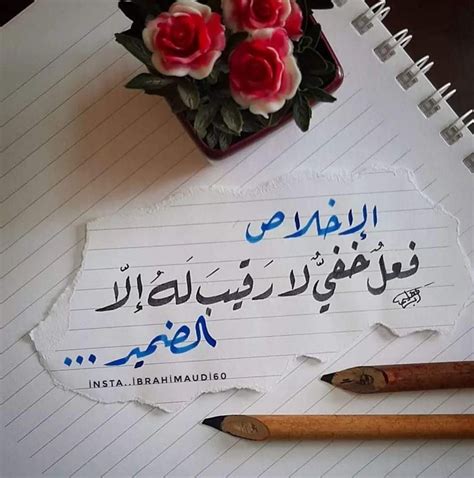 الإخلاص
فعلٌ خفيٌّ لا رَقيبَ لَهُ إلّا
الضمير ...
İNSTA..İBRAHİMAUDİ60